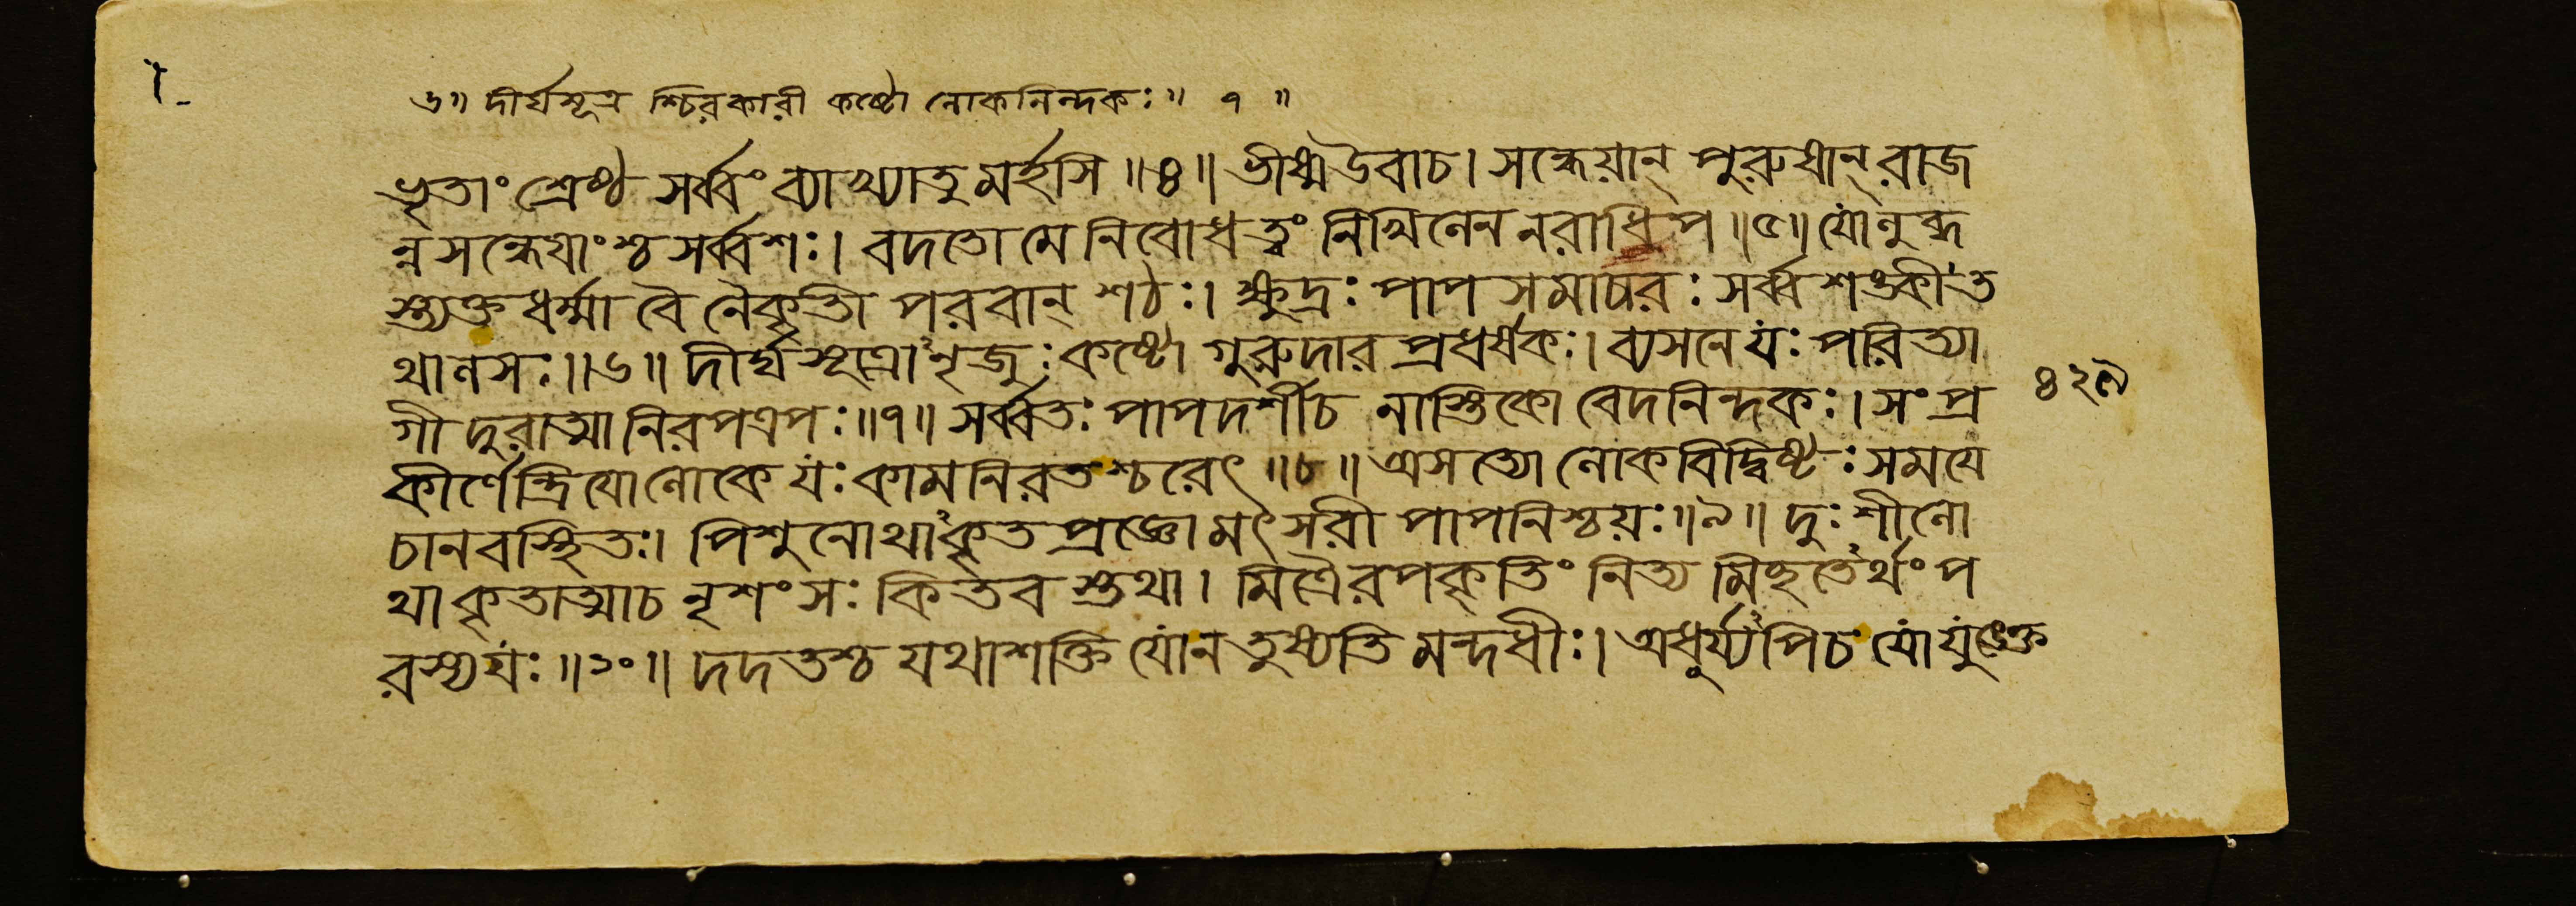 ৬॥ দীর্ঘসূত্র শ্চিরকারী কষ্টো লোকনিন্দকঃ॥ ৭ ॥
ভৃতাং শ্রেষ্ঠ সর্ব্বং ব্যাখ্যাতুমর্হসি॥৪॥ ভীষ্মউবাচ। সন্ধেয়ান্ পুরুষান্ রাজ
ন্নসন্ধেয়াংশ্চ সর্ব্বশঃ। বদতো মে নিবোধ ত্বং নিখিলেন নরাধিপ॥৫॥
ধর্ম্মা বৈ নৈকৃতী পরবান্ শঠঃ। ক্ষুদ্রঃ পাপসমাচারঃ সর্ব্বশঙ্কী
থালসঃ॥৬॥ দীর্ঘসূত্রোঽনৃজুঃ কষ্টো গুরুদারপ্রধর্ষকঃ। ব্যসনে যঃ পরিত্যা
৪২৯
গী দুরাত্মা নিরপত্রপঃ॥৭॥ সর্ব্বতঃ পাপদর্শী চ নাস্তিকো বেদনিন্দকঃ। সংপ্র
কীর্ণেন্দ্রিয়ো লোকে যঃ কামনিরতশ্চরেৎ॥৮॥ অসত্যো লোকবিদ্বিষ্টঃ সময়ে
চানবস্থিতঃ। পিশুনোথাঽকৃতপ্রজ্ঞো মৎসরী পাপনিশ্চয়ঃ॥৯॥ দুঃশীলো
থাকৃতাত্মা চ নৃশংসঃ কিতবস্তথা। মিত্রৈরপকৃতিং নিত্যমিচ্ছতেঽর্থং প
রস্য যঃ॥১০॥ দদতশ্চ যথাশক্তি যো ন তুষ্যতি মন্দধীঃ। অধৈর্য্যঽপি চ যো যুংক্তে